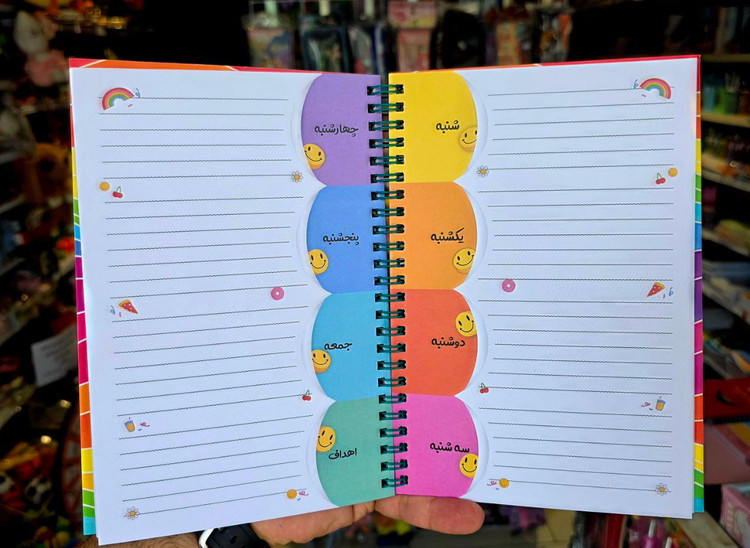 شنبه
یکشنبه
دوشنبه
سه شنبه
چهارشنبه
پنجشنبه
جمعه
اهداف